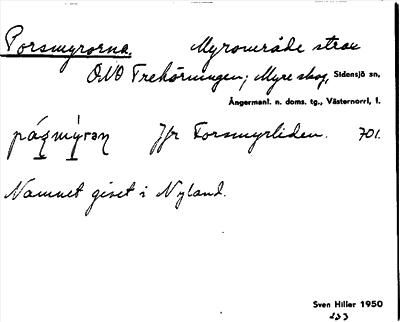 Porsmyrorna. Myrområde strax
ONO Trehörningen; Myre skog, Sidensjö sn,
Ångermanl. n. doms. tg., Västernorrl. l.
Jfr Forsmyrliden. 701.
Namnet giset i Nyland.
Sven Hiller 1950
233